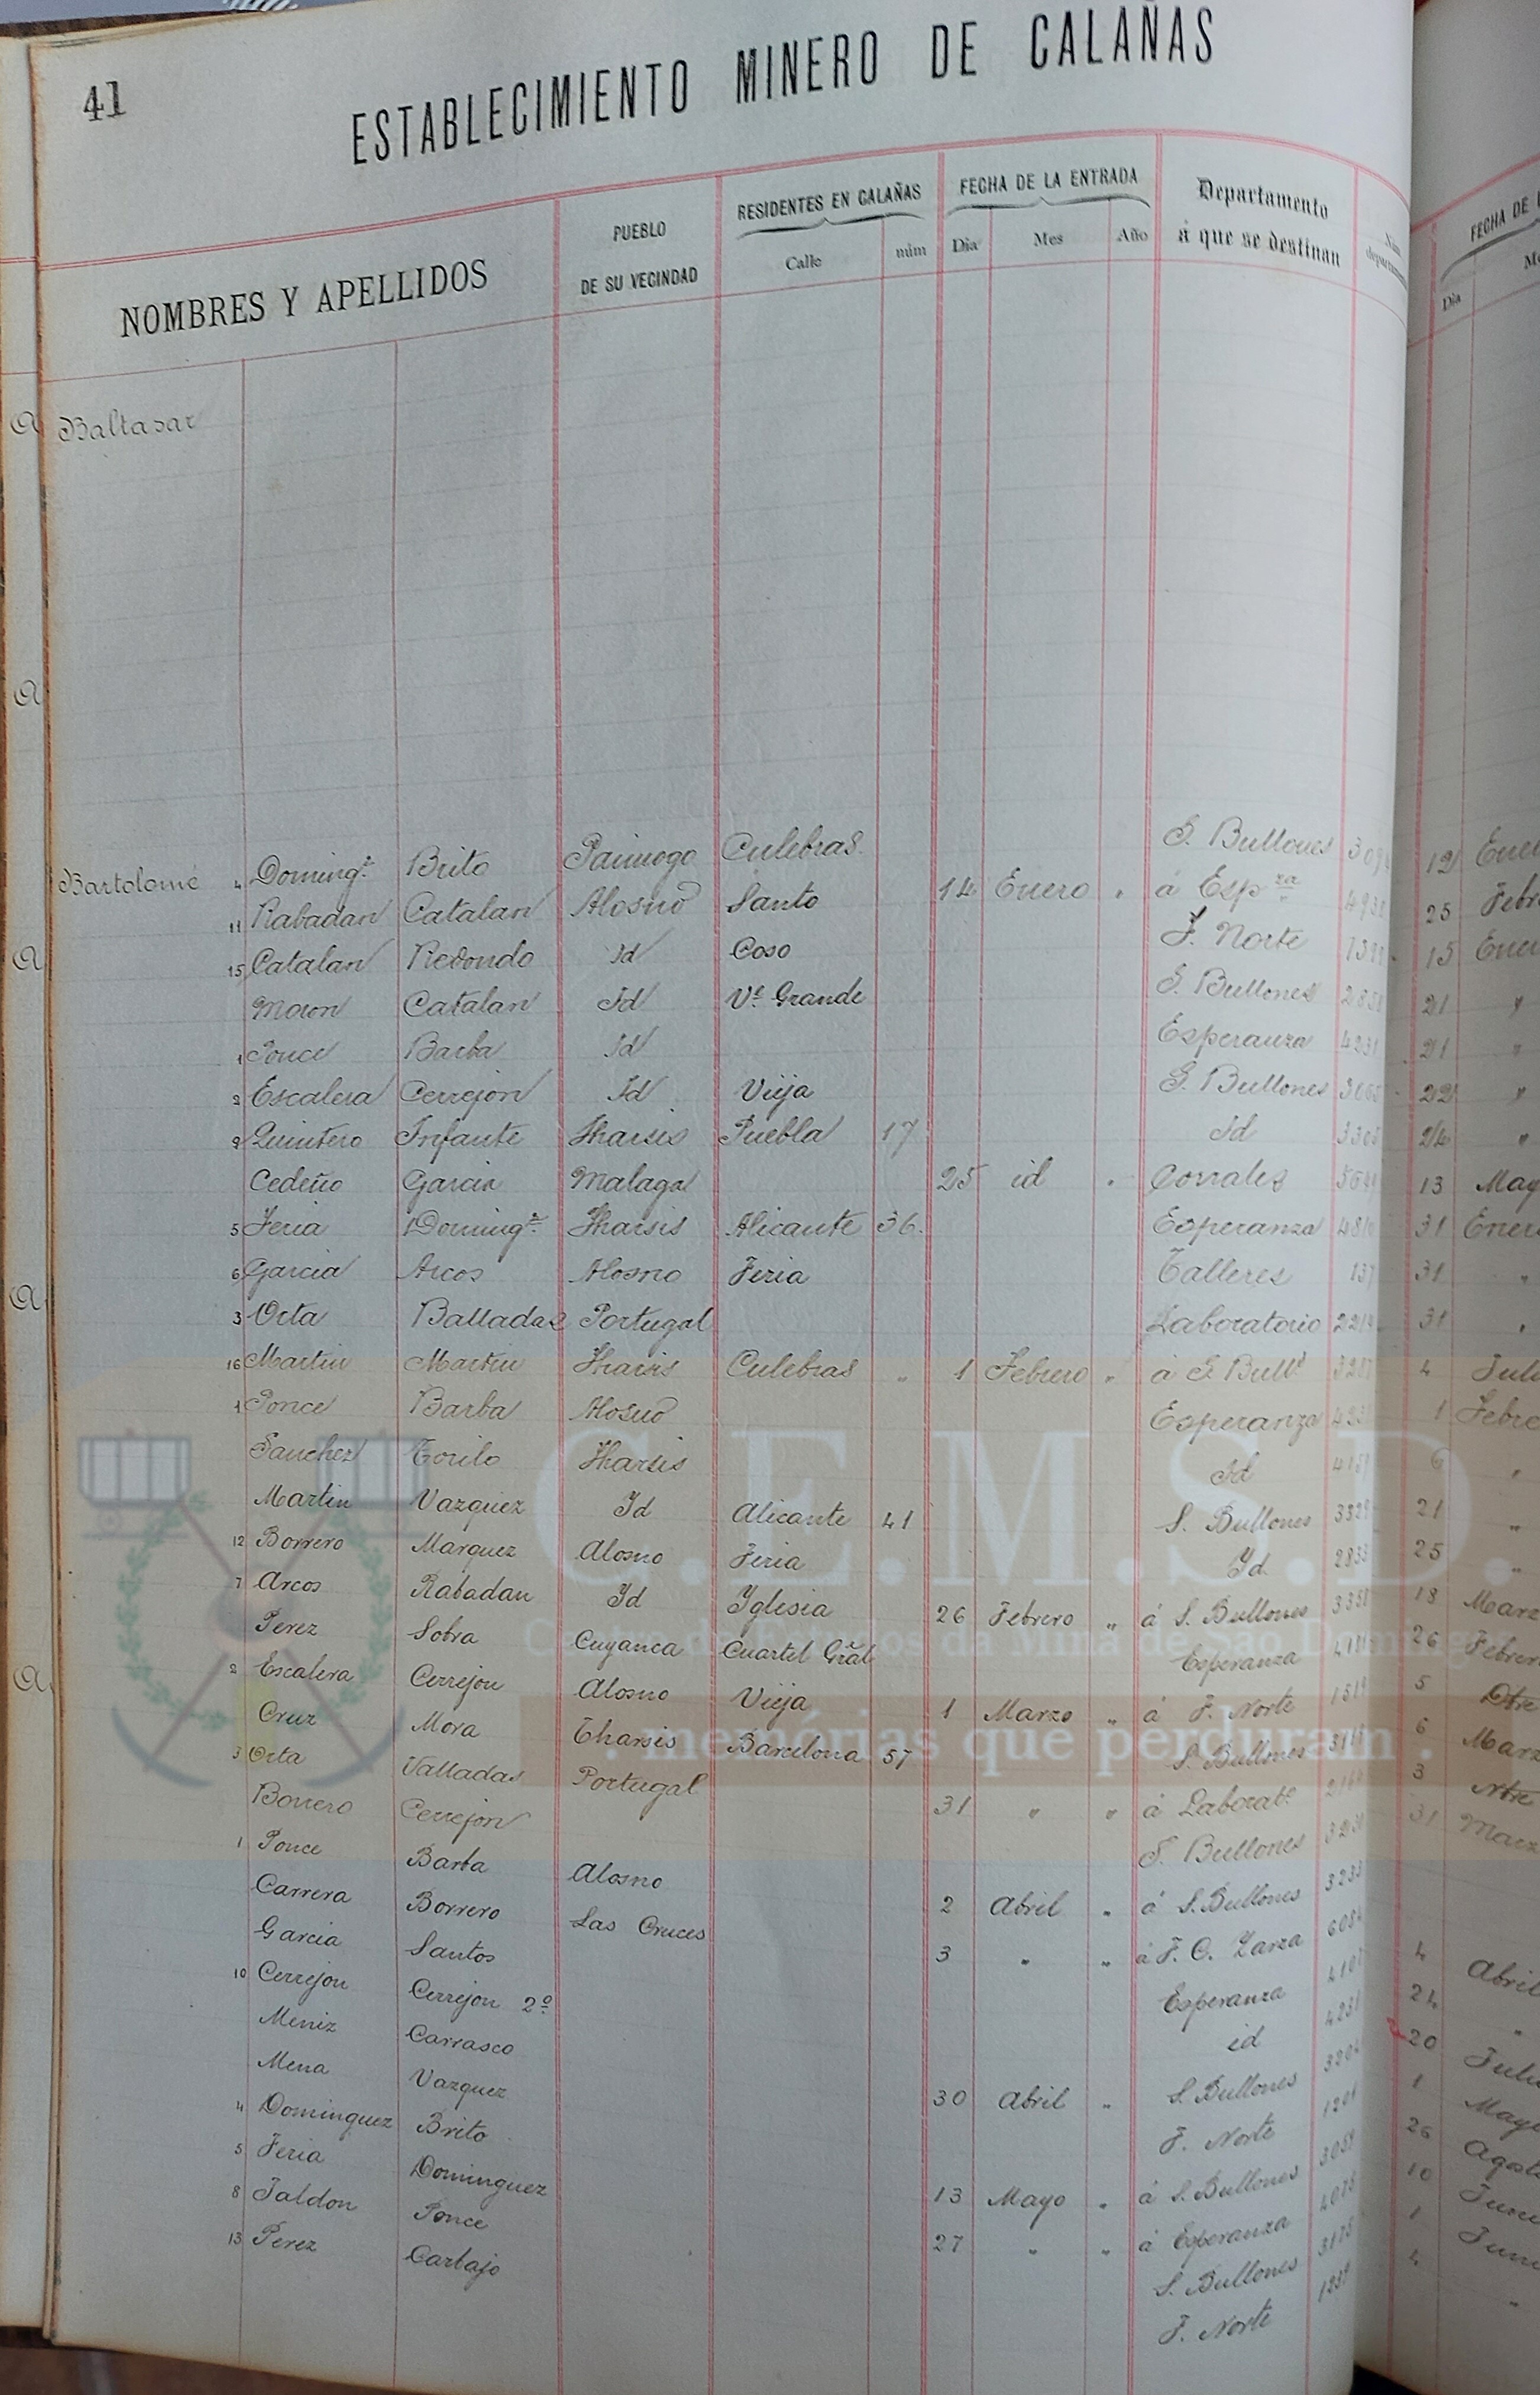 41
ESTABLECIMIENTO MINERO DE CALAÑAS
NOMBRES Y APELLIDOS
PUEBLO DE SU VECINDAD
RESIDENTES EN CALAÑAS
Calle núm
FECHA DE LA ENTRADA
Día Mes Año
Departamento á que se destinan
FECHA DE
Día
Baltasar
Bartolomé 4 Doming.z Brito Paimogo Culebras S. Bullones 12
11 Rabadan Catalan Alosno Santo 14 Enero " á Esp.za 25 Febr
15 Catalan Redondo Id Coso F. Norte 15 Ener
Catalan Id V.e Grande S. Bullones 21 "
1 Ponce Barba Id Esperanza 4231 21 "
2 Escalera Cerrejon Id Vieja S. Bullones 22 "
9 Quintero Infante Tharsis Puebla 17 Id 24 "
Cedeño Garcia Malaga 25 id " Corrales 13 May
5 Feria Doming.z Tharsis Alicante 36 Esperanza 31 Enero
6 Garcia Arcos Alosno Feria Talleres 137 31 "
3 Orta Balladas Portugal Laboratorio 31 "
16 Martin Martin Tharsis Culebras " 1 Febrero " á S. Bull.s 4 Juli
1 Ponce Barba Alosno Esperanza 1 Febre
Sanchez Torilo Tharsis Id 6 "
Martin Vazquez Id Alicante 41 S. Bullones 3329 21 "
12 Borrero Marquez Alosno Feria Id 2833 25 "
7 Arcos Rabadan Id Iglesia 26 Febrero " á S. Bullones 3351 18 Marz
Perez Sobra Cuyanca Cuartel Gral Esperanza 26 Febrer
2 Escalera Cerrejon Alosno Vieja 1 Marzo " á F. Norte 1519 5 Dbre
Cruz Mora Tharsis Barcelona 57 S. Bullones 6 Marz
3 Orta Valladas Portugal 31 " " á Laborat.o 3 Nbre
Borrero Cerrejon S. Bullones 31 Marz
1 Ponce Barba Alosno 2 Abril " á S. Bullones 3233
Carrera Borrero Las Cruces 3 " " á F. C. Zarza 6084
Garcia Santos Esperanza 4 Abril
10 Cerrejon Cerrejon 2.o id 4231 24 "
Meniz Carrasco 30 Abril " S. Bullones 3204 20 Juli
Mena Vazquez F. Norte 1201 1 Mayo
4 Dominguez Brito 13 Mayo " á S. Bullones 3059 26 Agost
5 Feria Dominguez 27 " " á Esperanza 4078 10 Juni
8 Faldon Ponce S. Bullones 3178 1 Juni
13 Perez Carbajo F. Norte 1339 4 "
C.E.M.S.D.
Centro de Estudos da Mina de São Domingos
. memórias que perduram .